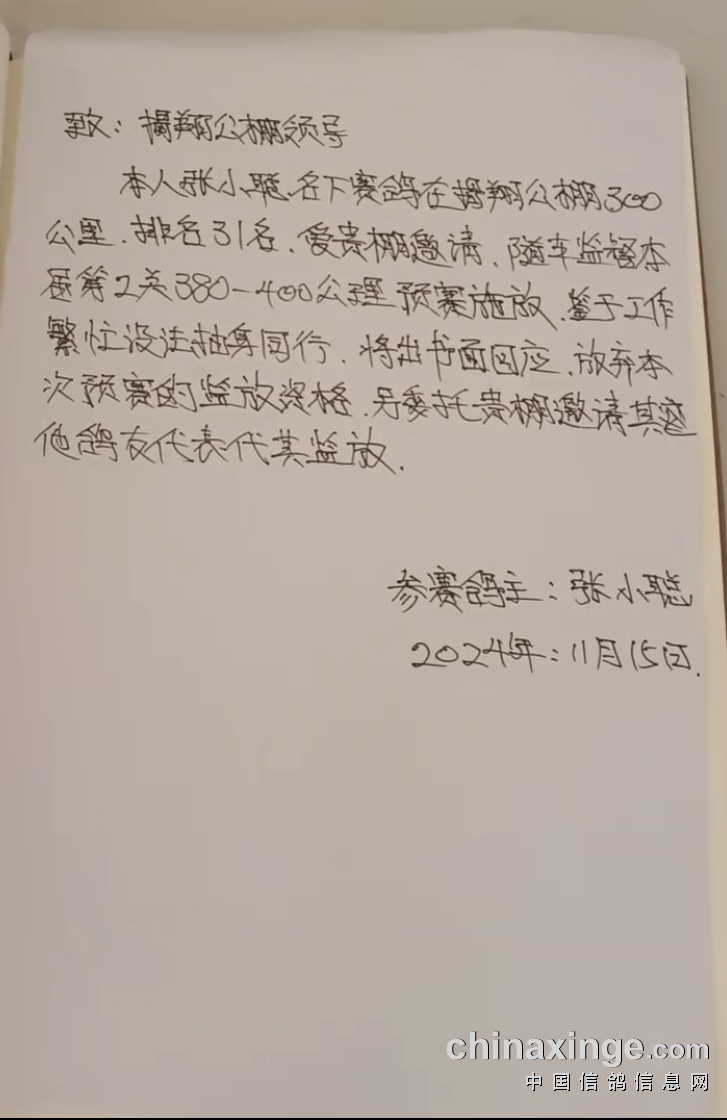 致：揭翔公棚领导
本人张小聪、名下赛鸽在揭翔公棚300
公里、排名31名、爱贵棚邀请、随车监督本
届第2关380-400公理预赛施放、鉴于工作
繁忙没法抽身同行、将出书面回应、放弃本
次预赛的监放资格、另委托贵棚邀请其它
他鸽友代表代其监放、
参赛鸽主：张小聪
2024年：11月15日.
chinaxinge.com
中国信鸽信息网